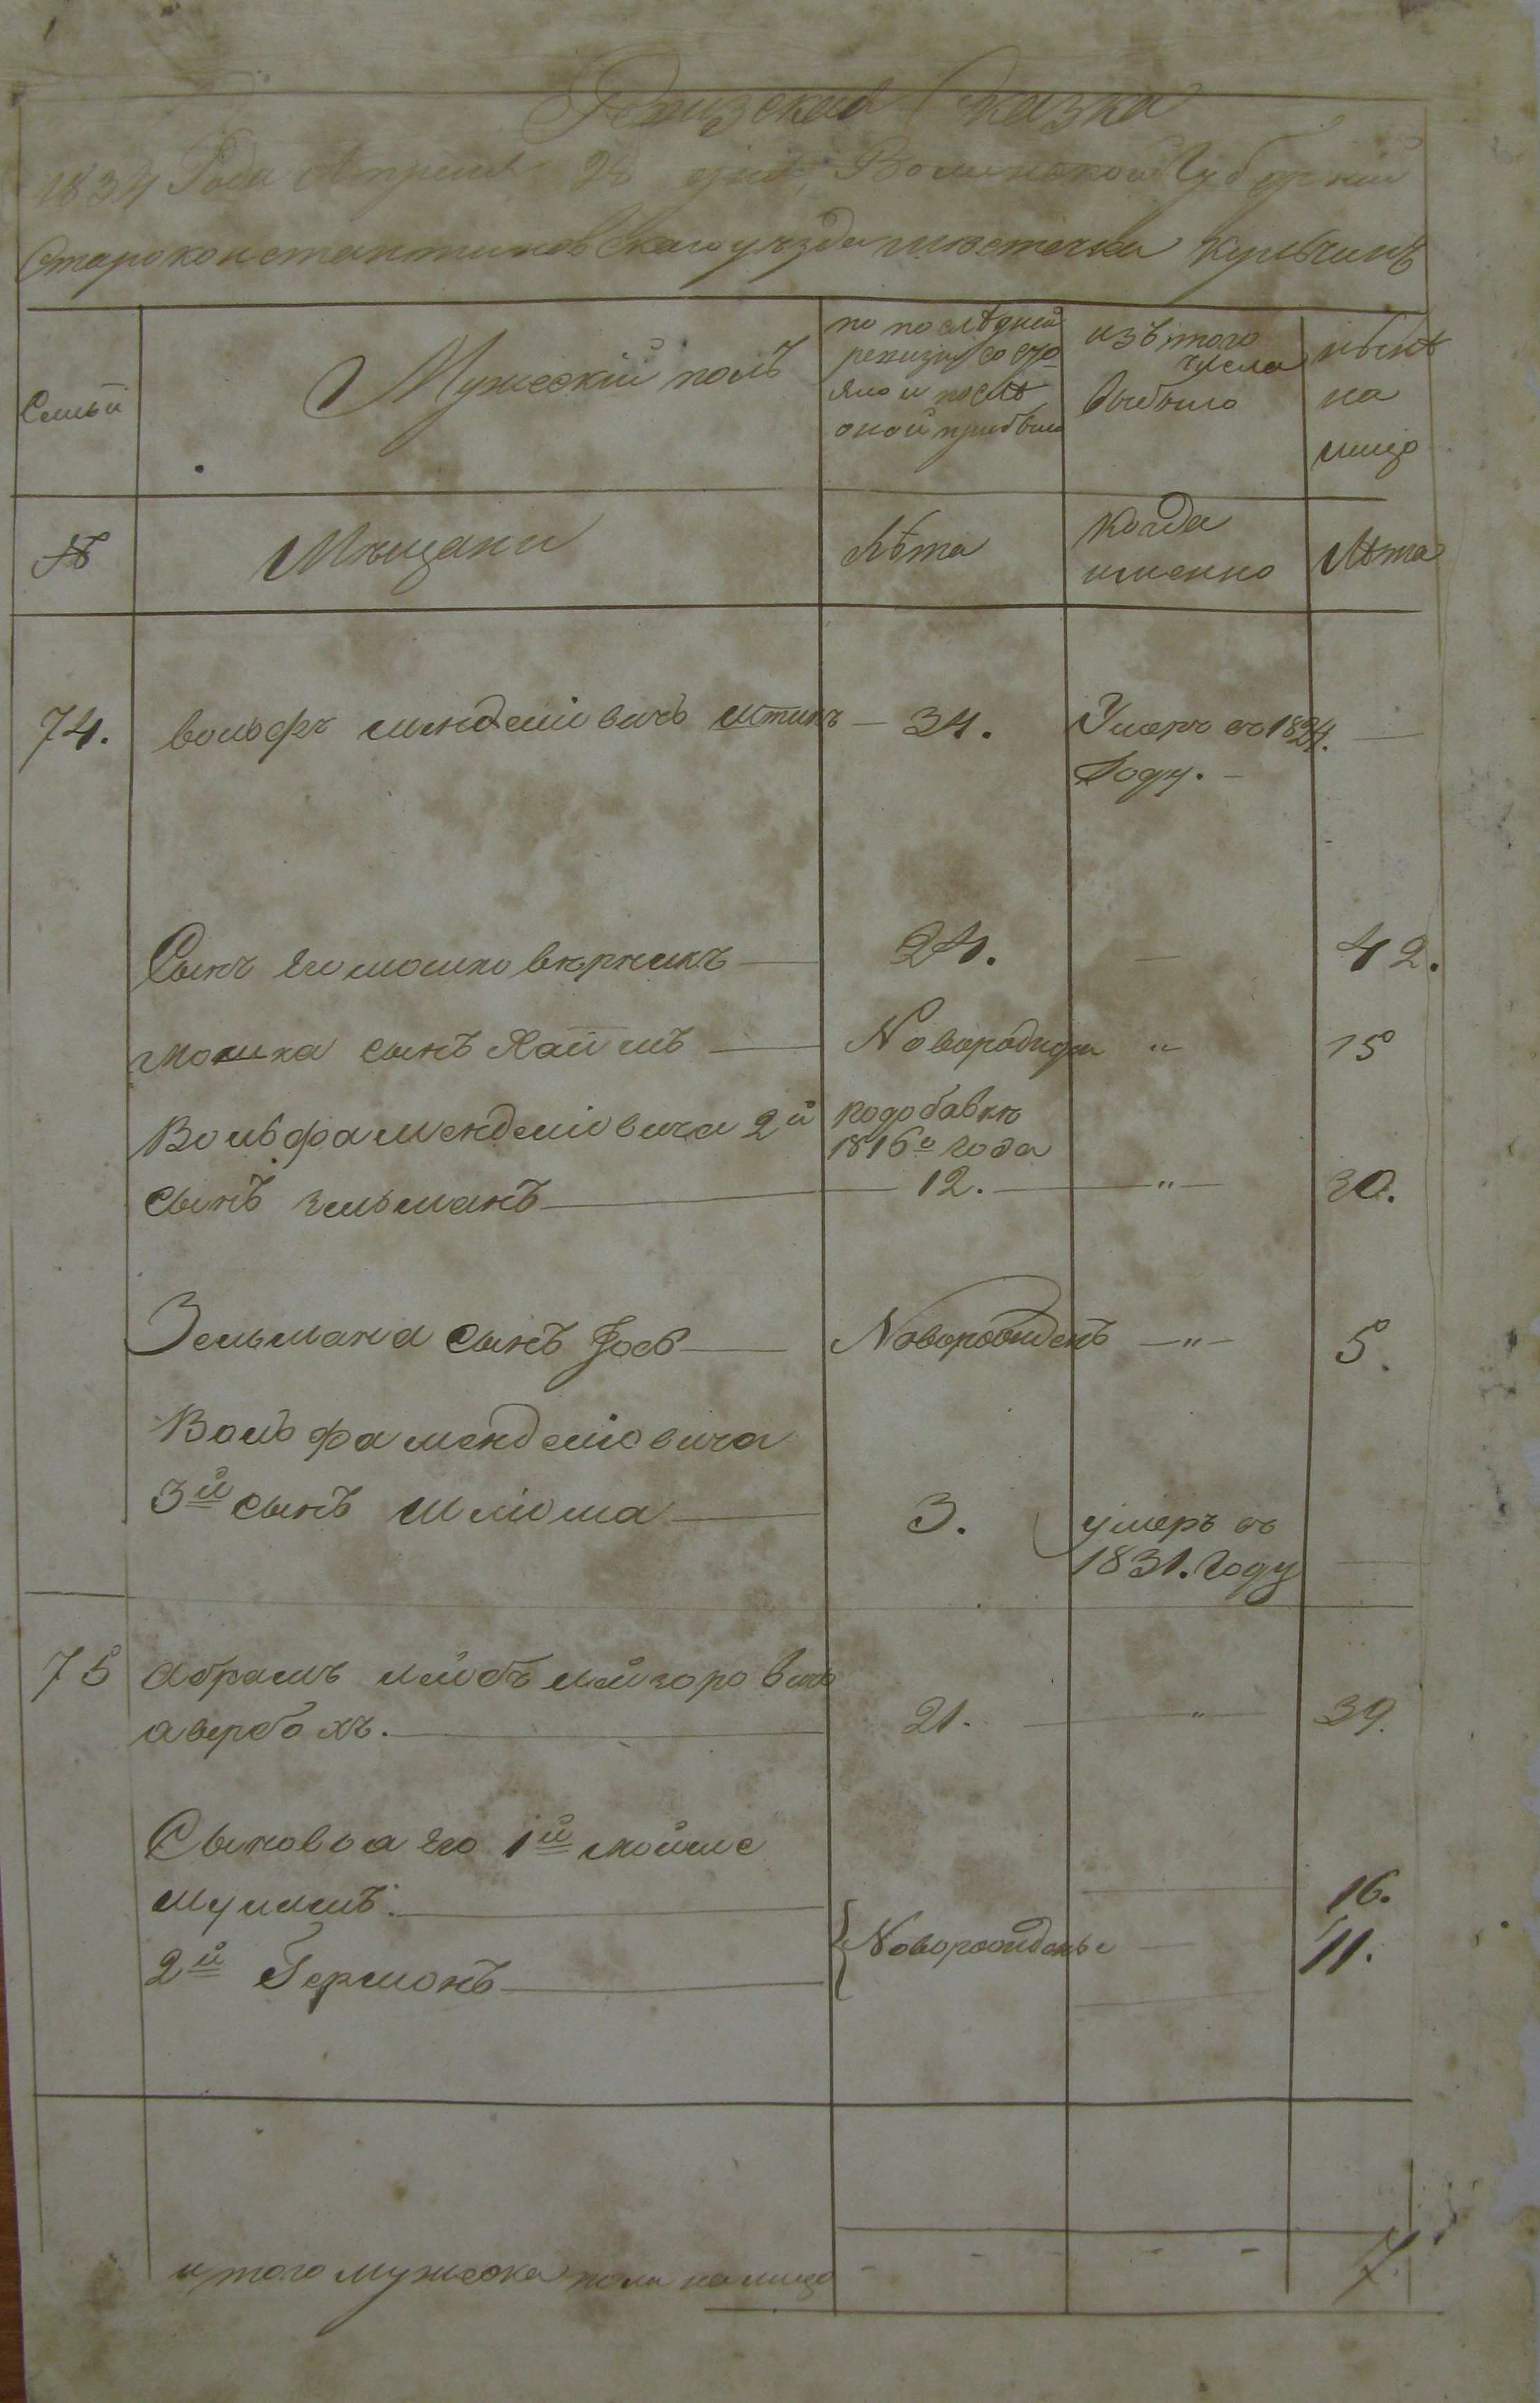 Ревизская Сказка
1834 Года Апреля 28 дня, Волынской Губернии
Староконстантиновскаго уезда местечка Кульчинъ
Семьи
Мужескій полъ
по последней
ревизіи состо
яло и после
оной прибыло
изъ того
числа
выбыло
ныне
на
лицо
№
Мещани
Лѣта
когда
именно
Лѣта
74. вольфъ менделіовичъ штикъ — 34. Умеръ въ 1824. —
Году. —
Сынъ его мошко 24. — 42.
мошка сынъ Хаимъ — Новорожден " 15
Вольфа менделіовича 2й по добавке
1816го года
сынъ зельманъ — 12. — " — 30.
Зельмана сынъ Іосъ — Новорожденъ — " — 5.
Вольфа менделіовича
3й сынъ шліома — 3. умеръ въ
1831. году —
75 абрамъ лейбъ лейзоровичъ
авербохъ. — 21. — " — 39.
Сыновья его 1й мойше
мулимъ. — 16.
2й Гершонъ — Новорожденые — 11.
итого мужеска пола налицо - - - - - 7.